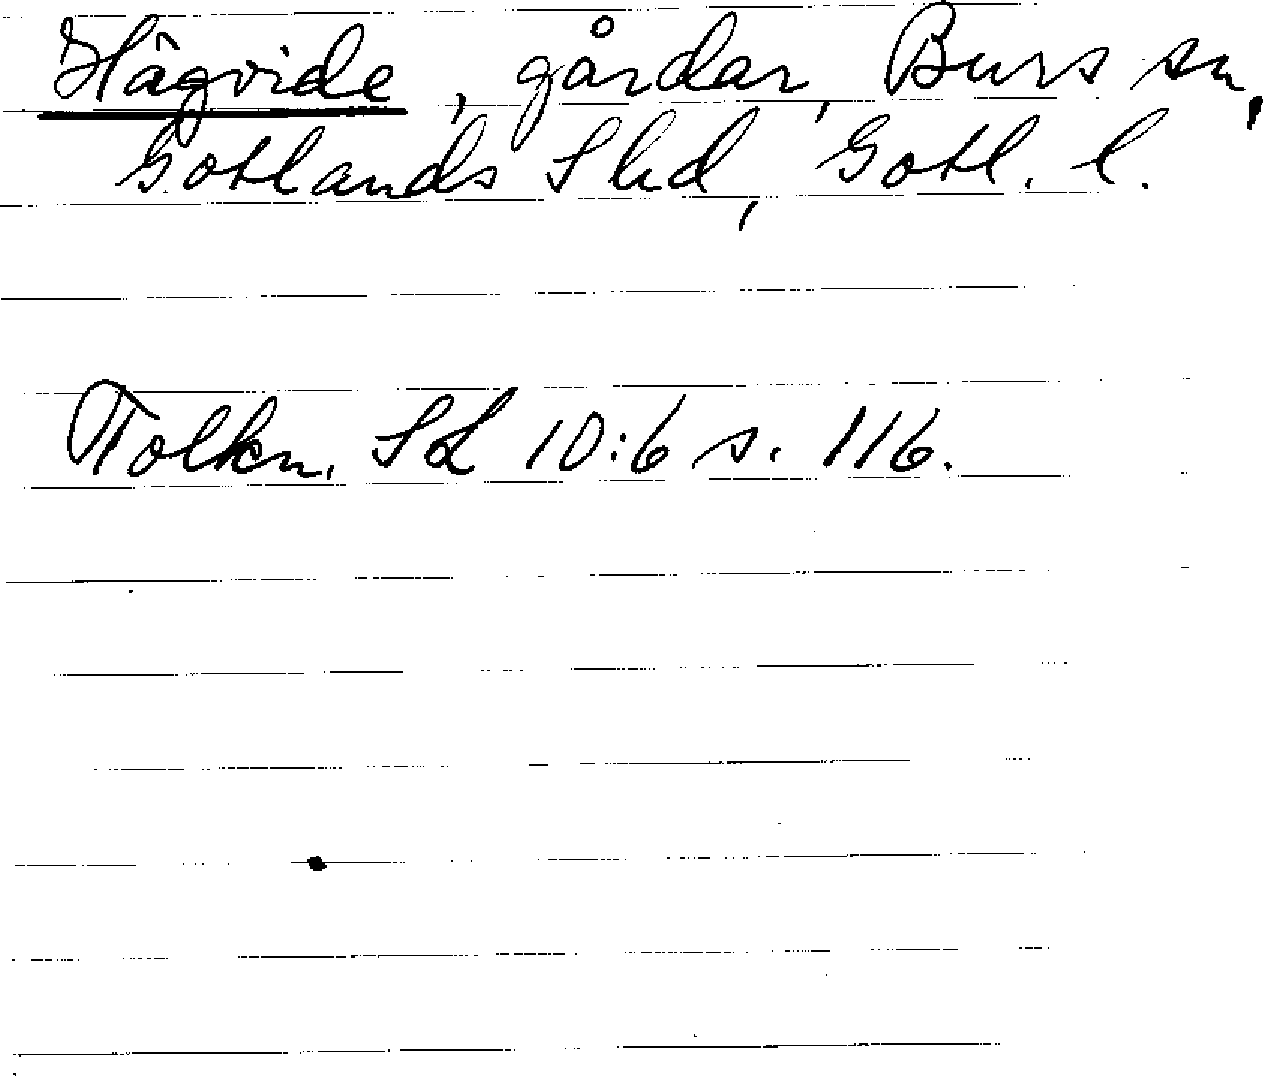 Hägvide, gårdar, Burs sn,
Gotlands S hd, Gotl. l.
Tolkn. SL 10:6 s. 116.